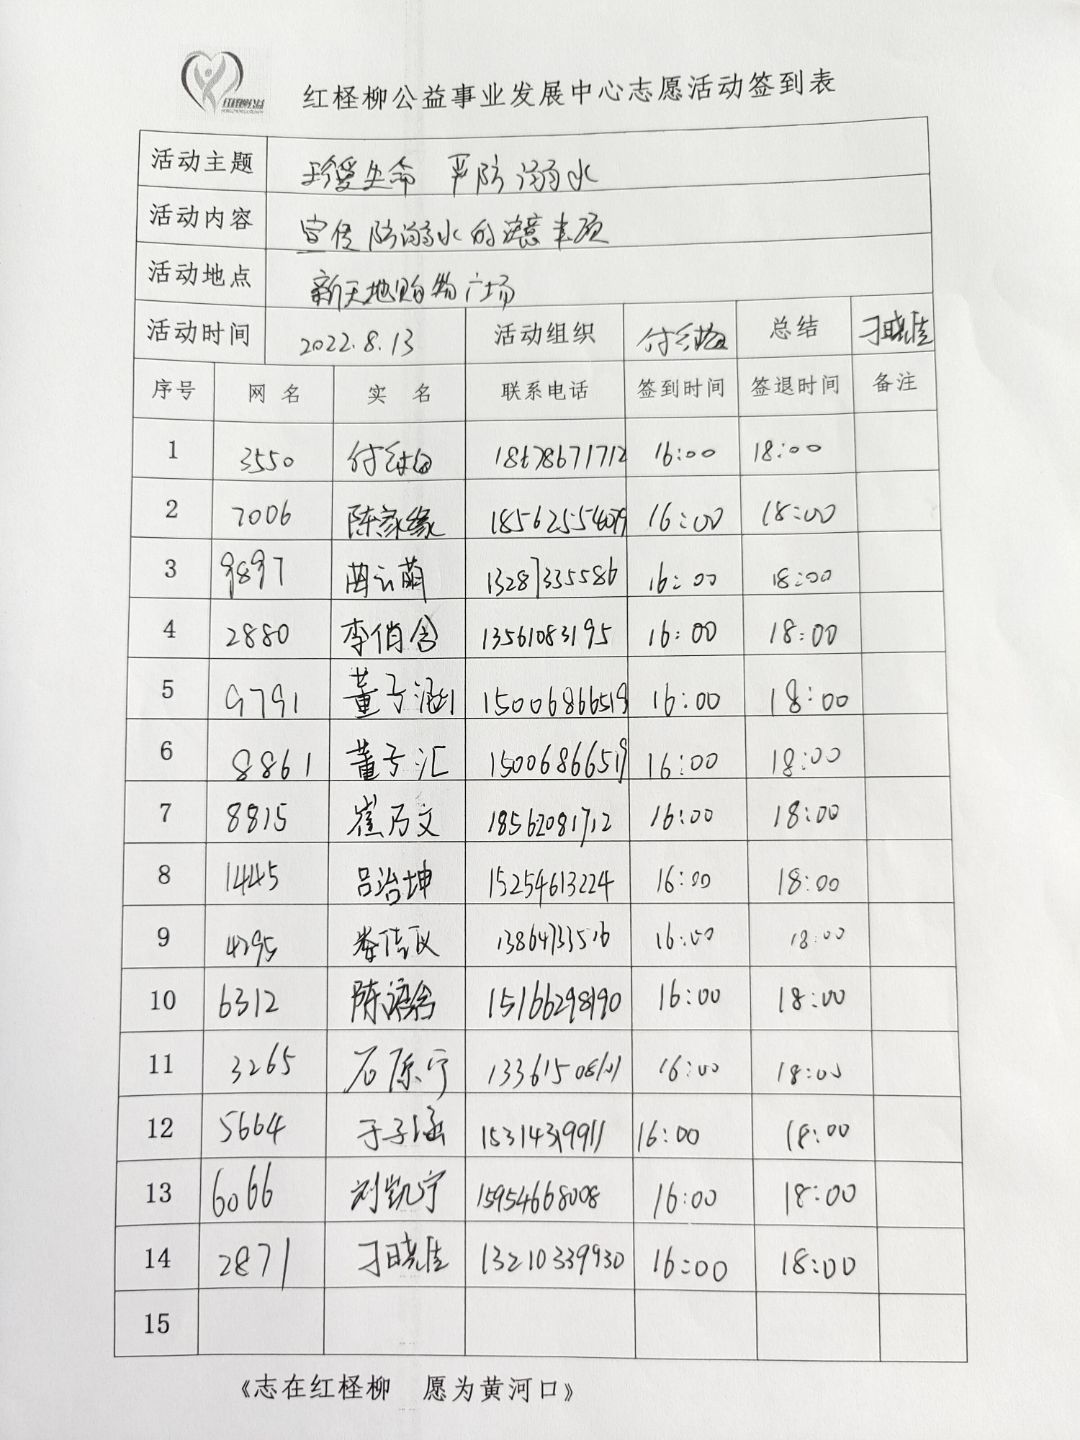 红柽柳公益事业发展中心志愿活动签到表
活动主题 珍爱生命 严防溺水
活动内容 宣传防溺水的注意事项
活动地点 新天地购物广场
活动时间 2022.8.13 活动组织 付红梅 总结 刁晓佳
序号 网名 实名 联系电话 签到时间 签退时间 备注
1 3550 付红梅 18678671712 16:00 18:00
2 7006 陈家缘 18562554079 16:00 18:00
3 9897 13287335586 16:00 18:00
4 2880 李俏含 13561083195 16:00 18:00
5 9791 董子涵 15006866519 16:00 18:00
6 8861 董子汇 15006866519 16:00 18:00
7 8815 崔乃文 18562081712 16:00 18:00
8 1445 吕治坤 15254613224 16:00 18:00
9 4295 13864733516 16:00 18:00
10 6312 陈语含 15166298190 16:00 18:00
11 3265 石原宁 16:00 18:00
12 5664 于子涵 15314319911 16:00 18:00
13 6066 刘凯宁 15954668008 16:00 18:00
14 2871 刁晓佳 13210339930 16:00 18:00
15
《志在红柽柳 愿为黄河口》